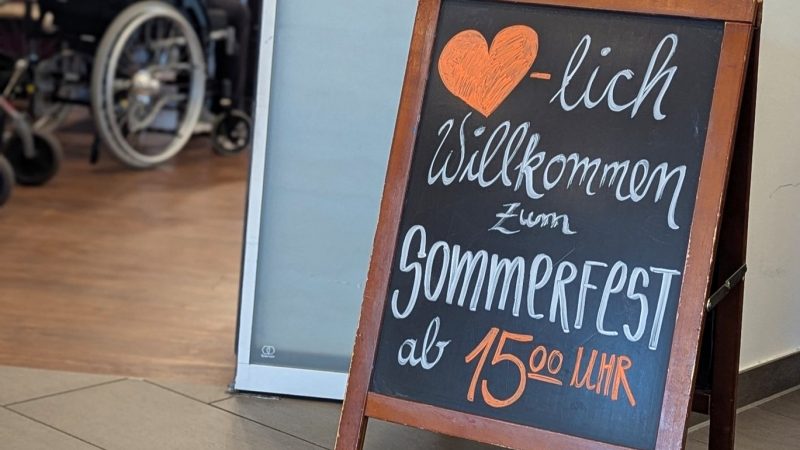 -lich
Willkommen
zum
Sommerfest
ab 15⁰⁰ UHR